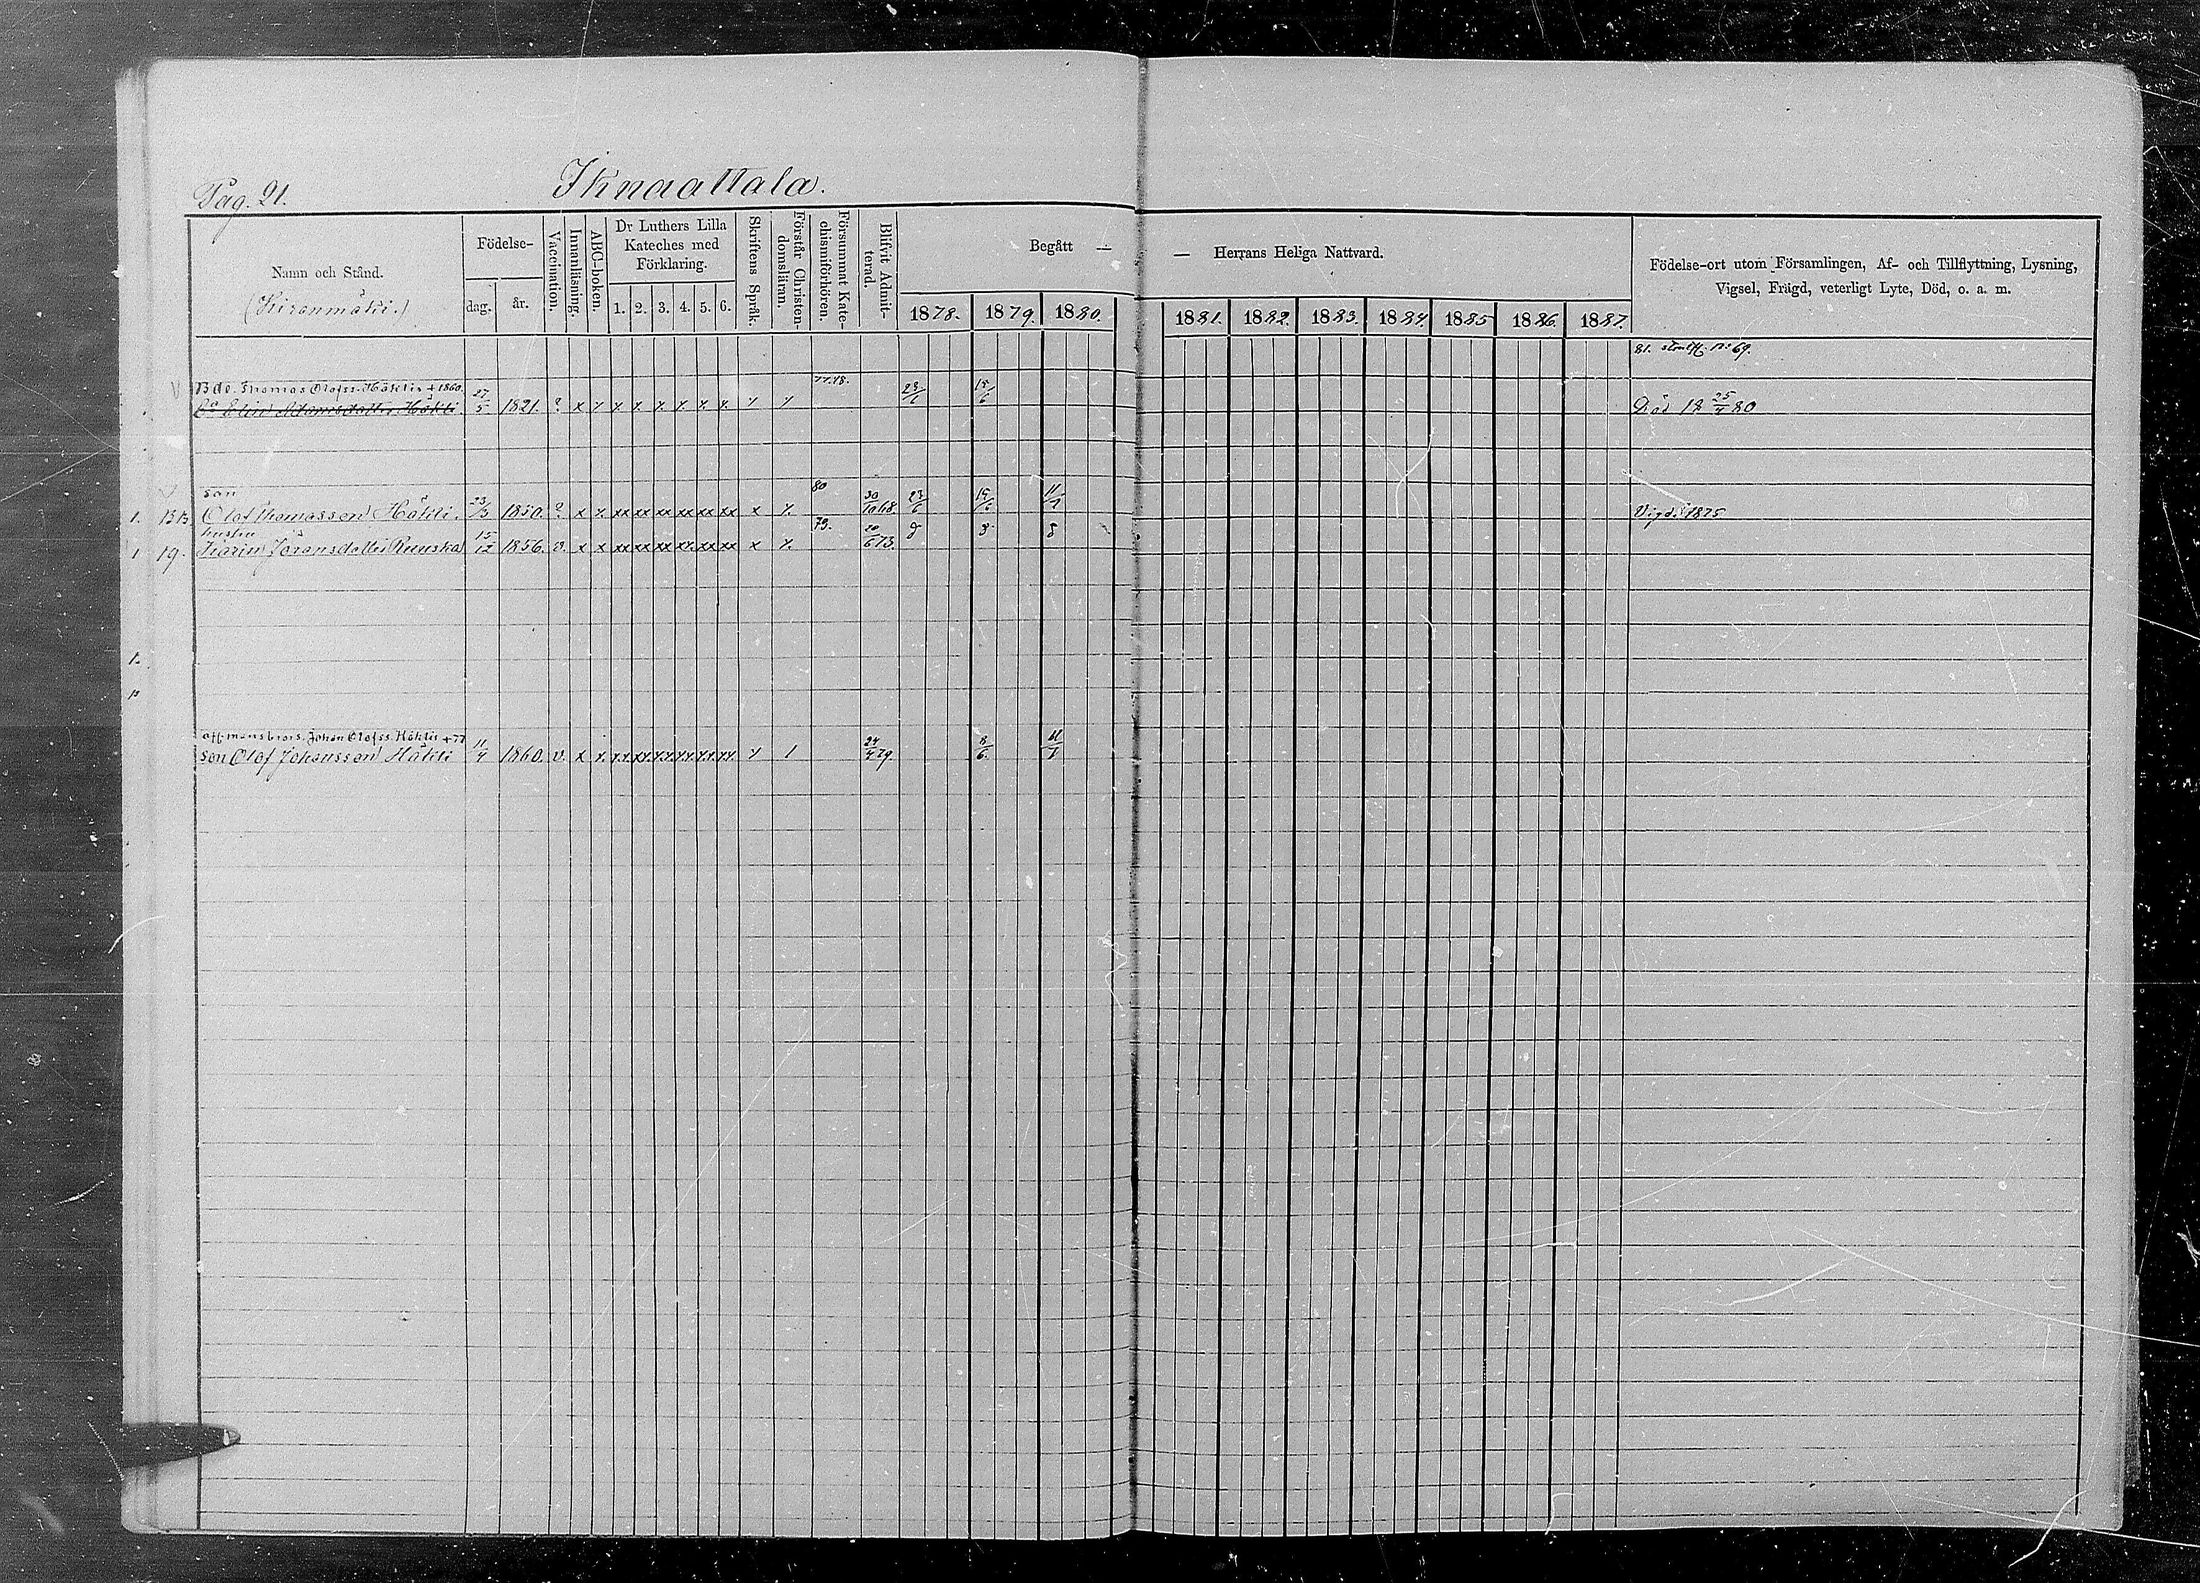 Pag. 21.
Iknaattala.
Namn och Stånd.
(Kiranmäki.)
Födelse-
dag.
år.
Vaccination.
Innanläsning.
ABC-boken.
Dr Luthers Lilla
Kateches med
Förklaring.
1. 2. 3. 4. 5. 6.
Skriftens Språk.
Förstår Christen-
domsläran.
Försummat Kate-
chismiförhören.
Blifvit Admit-
terad.
Begått —
1878. 1879. 1880.
— Herrans Heliga Nattvard.
1881. 1882. 1883. 1884. 1885 1886. 1887.
Födelse-ort utom Församlingen, Af- och Tillflyttning, Lysning,
Vigsel, Frägd, veterligt Lyte, Död, o. a. m.
81. No 69.
Bde. Thomas Olofss. Häklis + 1860. 77.78.
Elin Adamsdotter Häkli. 27/5 1821. ? x x x. x. x. x. x. x. x x 23/6 15/6 Död 18 25/4 80
son 80
1. Olof Thomasson Häkli. 23/3 1850. ? x x. xx xx xx xx xx xx x x. 30/10 68. 23/6 15/6 11/7 Vigd. 1875
hustru 79.
1 19. Karin Jöransdotter Ruuska 15/12 1856. v. x x xx xx xx xx. xx. xx x x. 20/6 73. 8 8 8
1.
Johan Olofss. Häklis + 77
son Olof Johansson Häkli 11/4 1860. v. x x. xx. xx. xx. xx. xx. xx. x 1 24/4 79. 8/6. 11/7